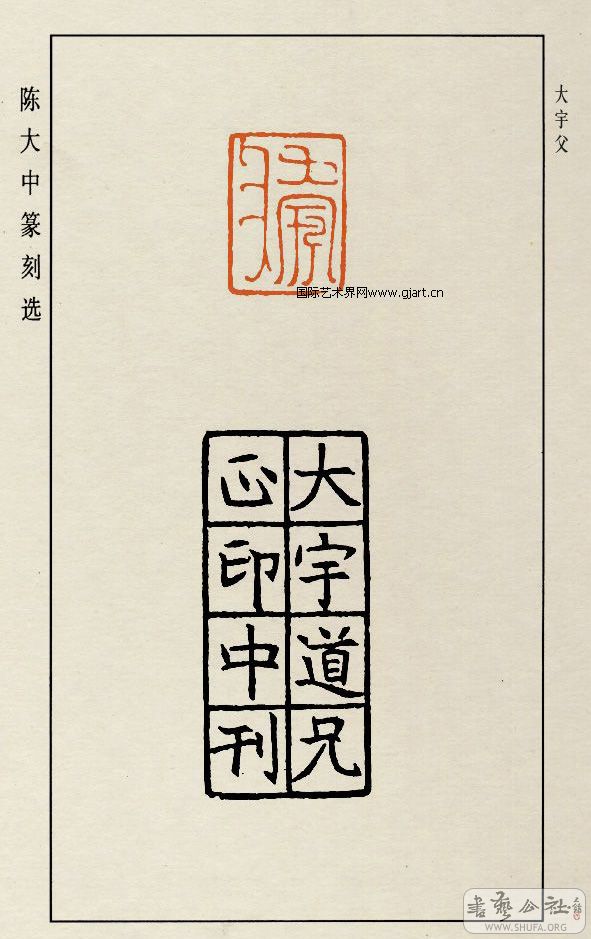 大宇父
陈大中篆刻选
大宇父
国际艺术界网www.gjart.cn
大宇道兄
正印中刊
書藝公社
WWW.SHUFA.ORG